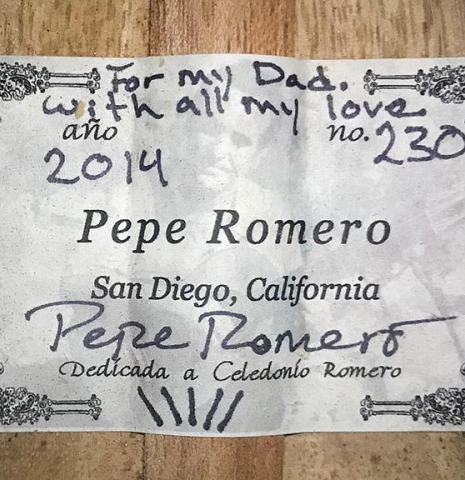 For my Dad.
with all my love
año no. 230
2014
Pepe Romero
San Diego, California
Pepe Romero
Dedicada a Celedonio Romero